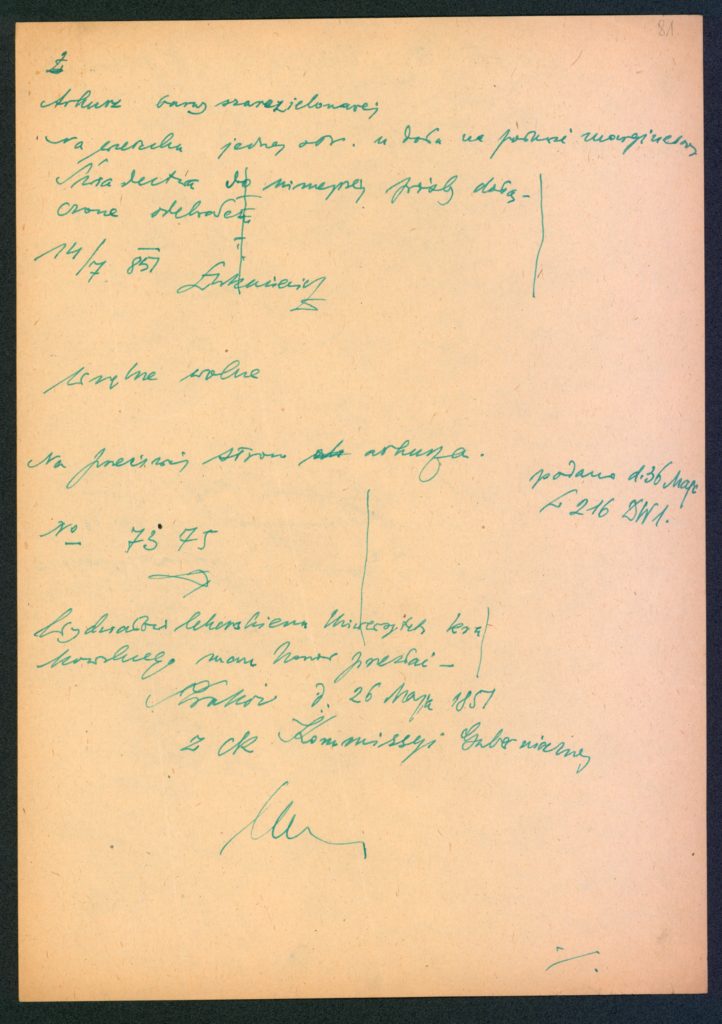 81
2
Arkusz barwy szarozielonawej
Na wierzchu jednej str. u dołu na połowie marginesowej
Świadectwa do niniejszej prośby dołą-
czone odebrałem
14/7 851
wolne
Na pierwszej stronie arkusza.
podano d. 36 Maja
L 216 DWl.
No 73 75
Wydziałowi lekarskiemu Uniwersytetu kra
kowskiego mam honor przesłać —
Kraków d. 26 Maja 1851
z ck Kommissyi Gubernialnej